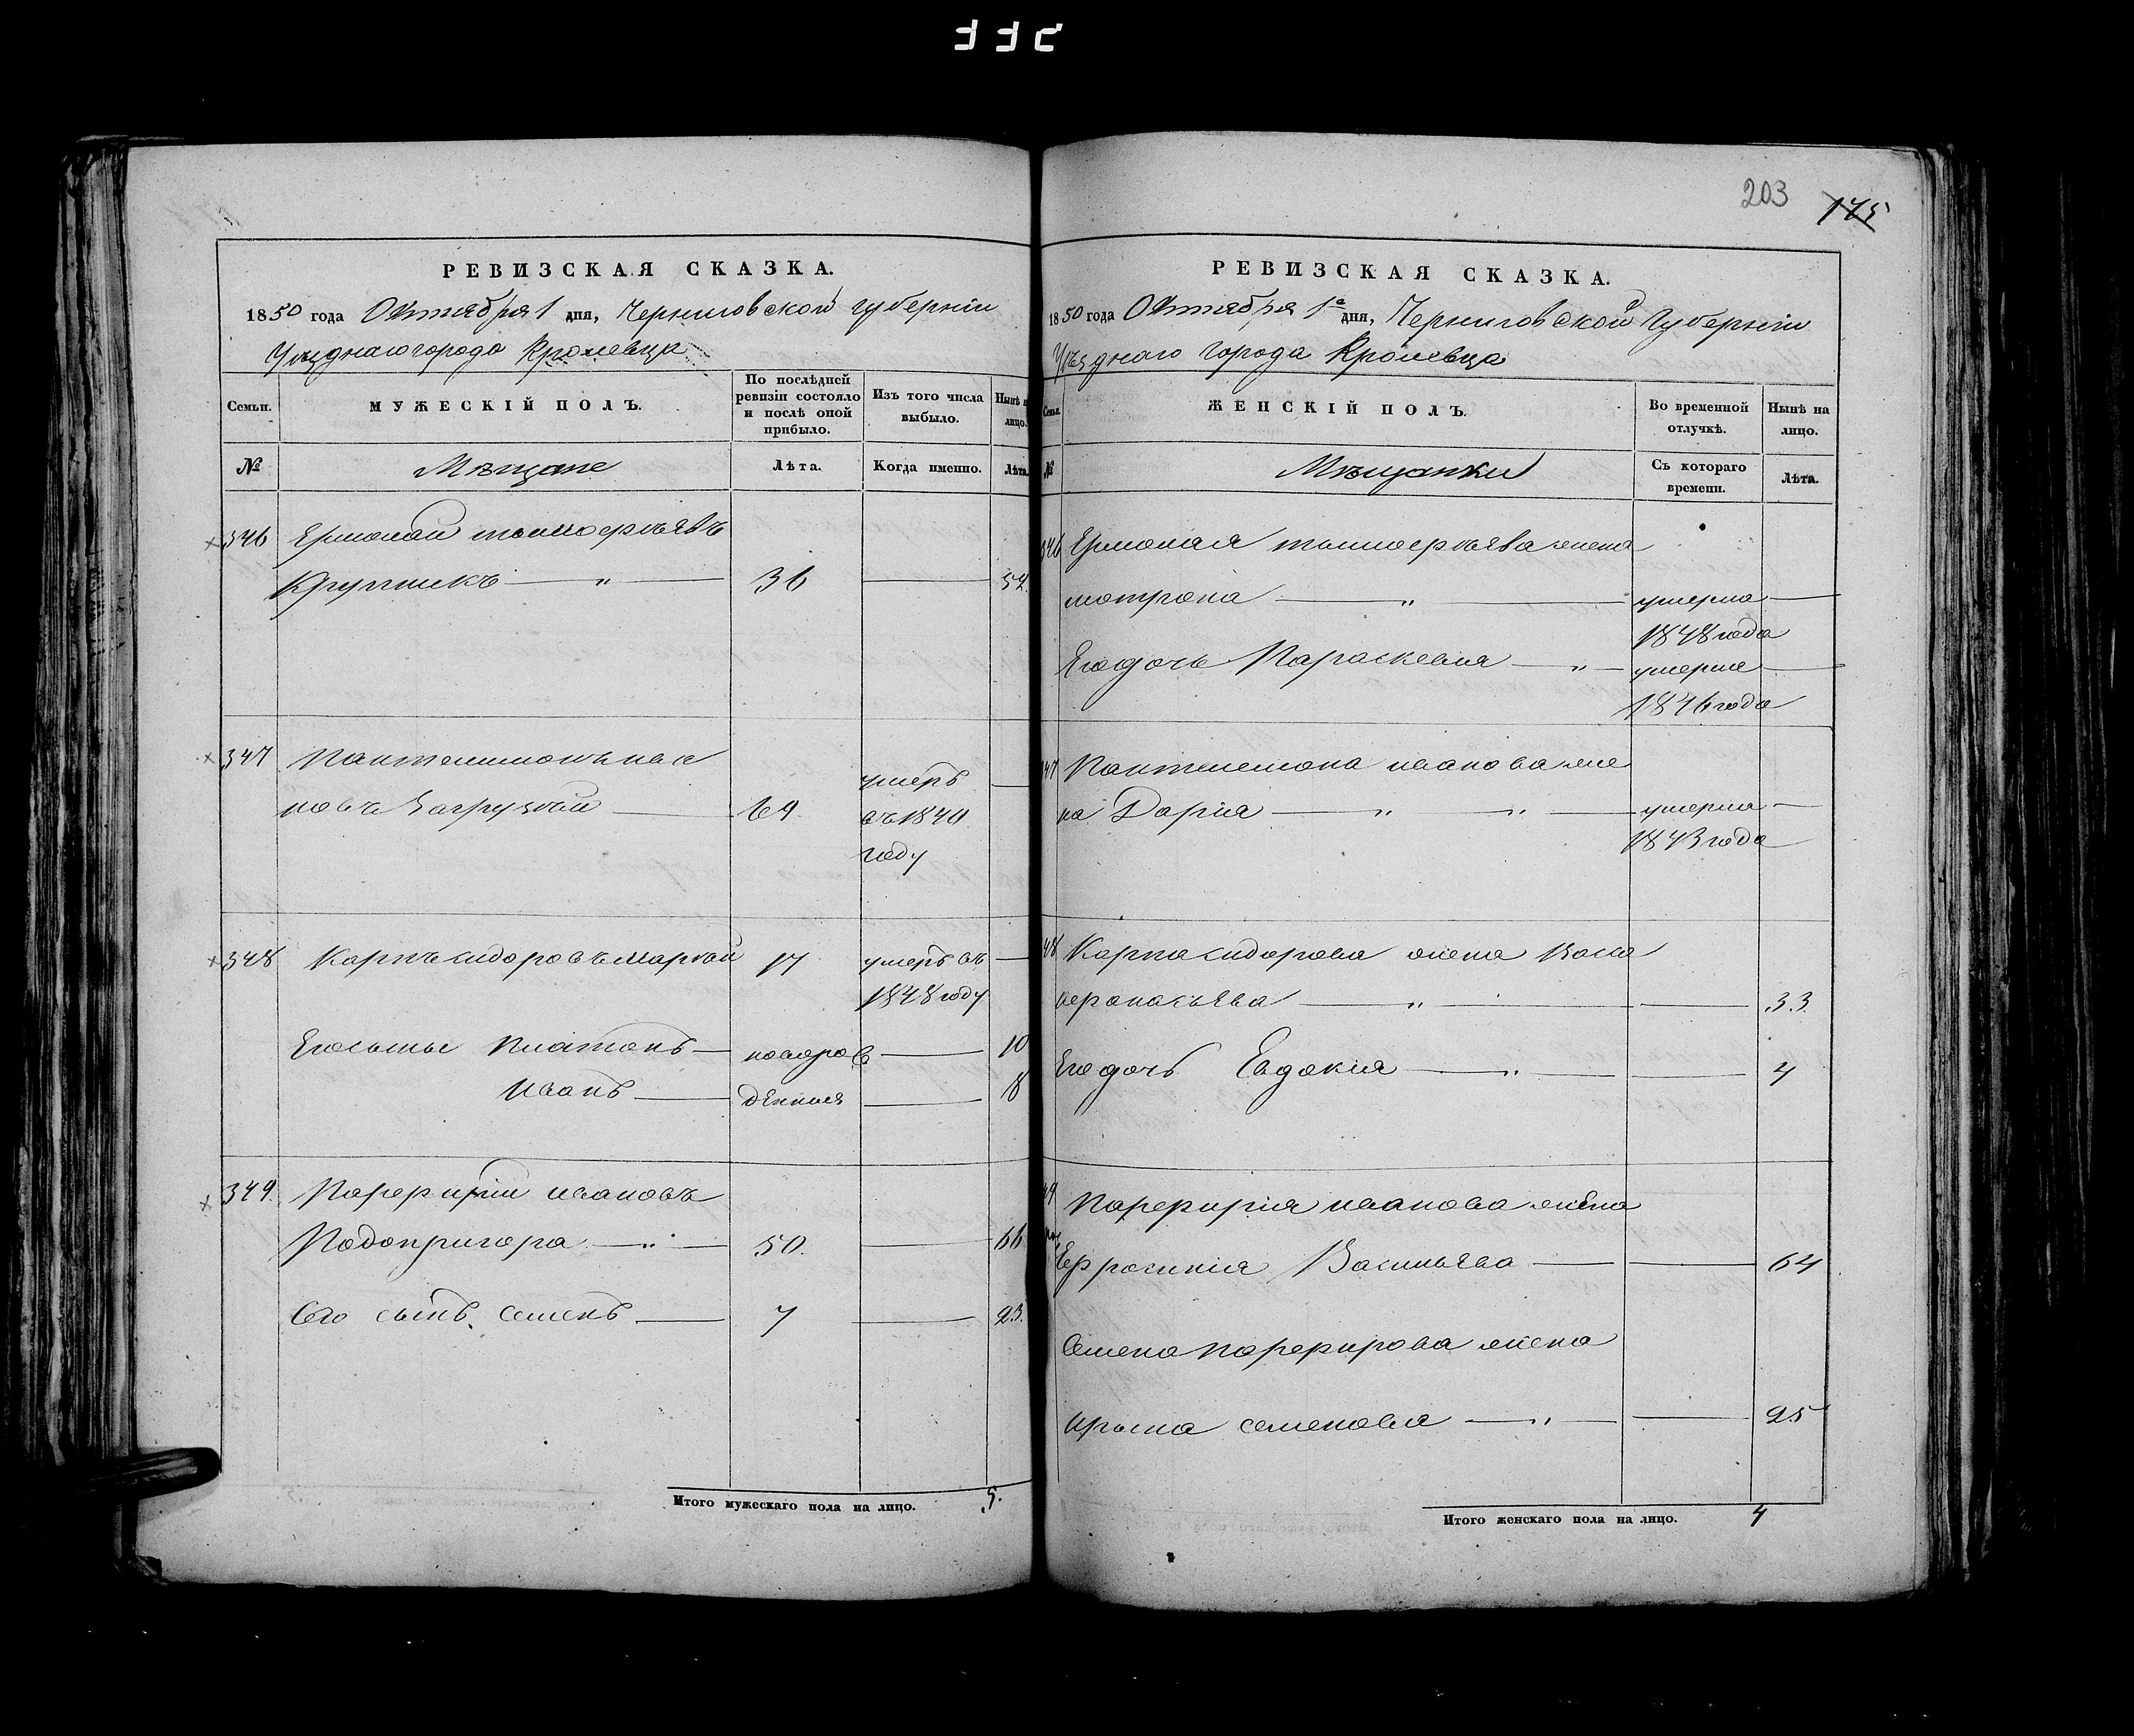 203
175
РЕВИЗСКАЯ СКАЗКА.
1850 года Октября 1 дня, Черниговской губерніи
Уѣзднаго города Кролевца
Семьи.
МУЖЕСКІЙ ПОЛЪ.
По послѣдней ревизіи состояло и послѣ оной прибыло.
Изъ того числа выбыло.
Нынѣ на лицо.
№
Мѣщане
Лѣта.
Когда именно.
Лѣта.
346 Ермолай
36 52.
347 Пантелимонъ Ива
новъ Загрузкій 64 умеръ
въ 1840
году
348 Карпъ Сидоровъ 17 умеръ въ
1848 году
Его сыны Платонъ новорож 10
Иванъ денныя 8
349. Порфирій Ивановъ
Подопригора 50. 66
Его сынъ Семенъ 7 23.
Итого мужескаго пола на лицо. 5.
РЕВИЗСКАЯ СКАЗКА.
1850 года Октября 1е дня, Черниговской Губерніи
Уѣзднаго города Кролевца
Семьи.
ЖЕНСКІЙ ПОЛЪ.
Во временной отлучкѣ.
Нынѣ на лицо.
№
Мѣщанки
Съ котораго времени.
Лѣта.
346 Ермолая жена
Мотрона умерла
1848 года
Его дочь Параскевия умерла
1846 года
47 Пантелемона Иванова же
на Дария умерла
1843 года
48 Карпа Сидорова жена
33.
Его дочь Евдокия 4
49 Порфирия Иванова жена
Ефросиния Васильева 64
Семена Порфирова жена
Ирина Семенова 25
Итого женскаго пола на лицо. 4